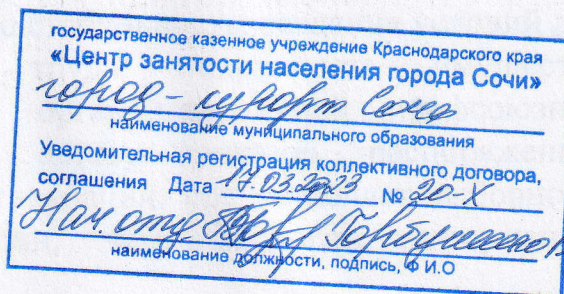 государственное казенное учреждение Краснодарского края
«Центр занятости населения города Сочи»
город-курорт Сочи
наименование муниципального образования
Уведомительная регистрация коллективного договора,
соглашения Дата 17.03.2023 № 20-Х
Нач. отд.
наименование должности, подпись, Ф И.О